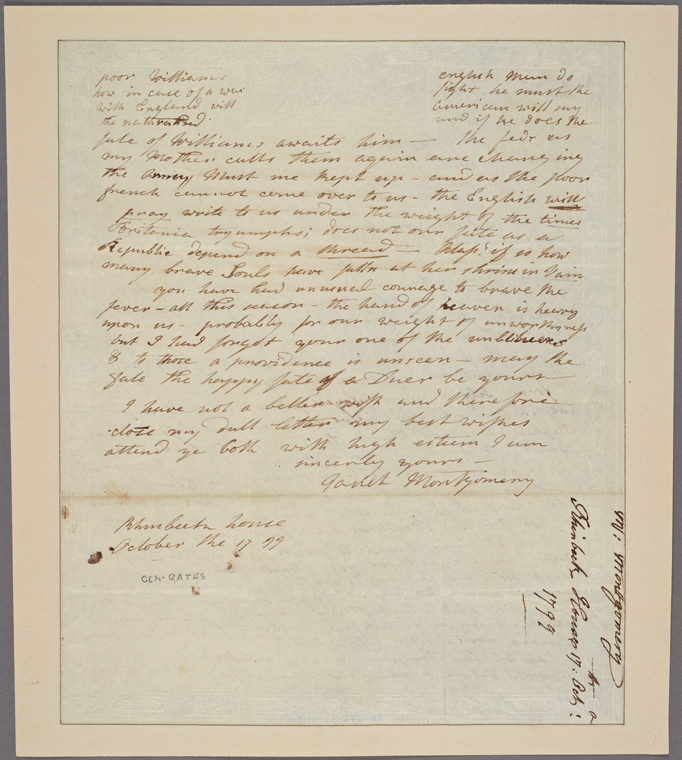 poor Williams
how in case of a war
with England will
the naturalised
english men do
fight he must the
american will say
and if he does the
fate of Williams awaits him — the feds as
my Mother calls them again are changing
the Army Must me kept up — and as the poor
french cannot come over to us - the English will
pray write to us under the weight of the times
Britania tryumphs; does not our fate as a
Republic depend on a thread — Alas! if so how
many brave Souls have falln at her shrine in Vain
you have had unusual courage to brave the
fever — all this season — the hand of heaven is heavy
upon us - probably for our weight of unworthyness
but I had forgot your one of the unbelievers
& to those a providence is unseen — may the
Gale the happy fate of a Duer be yours
I have not a better wish and therefore
close my dull letter my best wishes
attend ye both with high esteem I am
sincerly yours —
Janet Montgomery
Rhinbeeck house
October the 17 99
GENL GATES
Mrs: Montgomery
Rhinbeck House 17: Oct:
1799